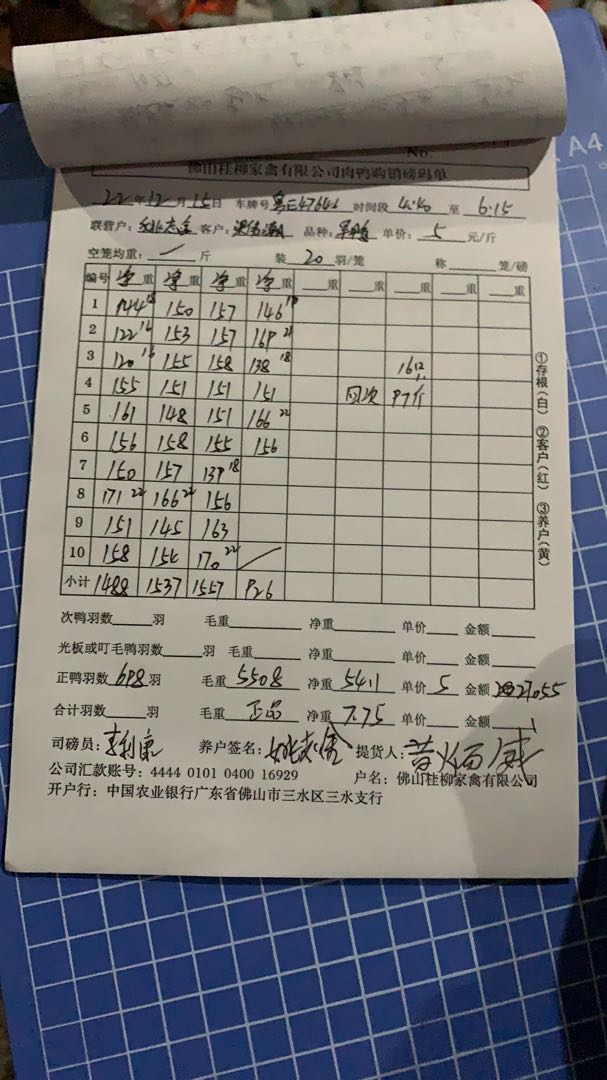 A4
No.
佛山桂柳家禽有限公司肉鸭购销磅码单
22年12月15日 车牌号 粤E47641 时间段 4:40 至 6:15
联营户: 客户: 品种: 单价: 5 元/斤
空笼均重: 一 斤 装 20 羽/笼 称 笼/磅
编号 净重 净重 净重 净重 重 重 重 重
1 144 18 150 157 146 19
2 122 16 153 157 169 21
3 120 16 155 158 138 18 1612
4 155 151 151 151 回次 97斤
5 161 148 151 166 22
6 156 158 155 156
7 150 157 139 18
8 171 22 166 22 156
9 151 145 163
10 158 154 170 22
小计 1488 1537 1557 926
①存根(白) ②客户(红) ③养户(黄)
次鸭羽数 羽 毛重 净重 单价 金额
光板或叮毛鸭羽数 羽 毛重 净重 单价 金额
正鸭羽数 698 羽 毛重 5508 净重 5411 单价 5 金额 27055
合计羽数 羽 毛重 正品 净重 7.75 单价 金额
司磅员: 李利康 养户签名: 提货人:
公司汇款账号: 4444 0101 0400 16929 户名: 佛山桂柳家禽有限公司
开户行: 中国农业银行广东省佛山市三水区三水支行